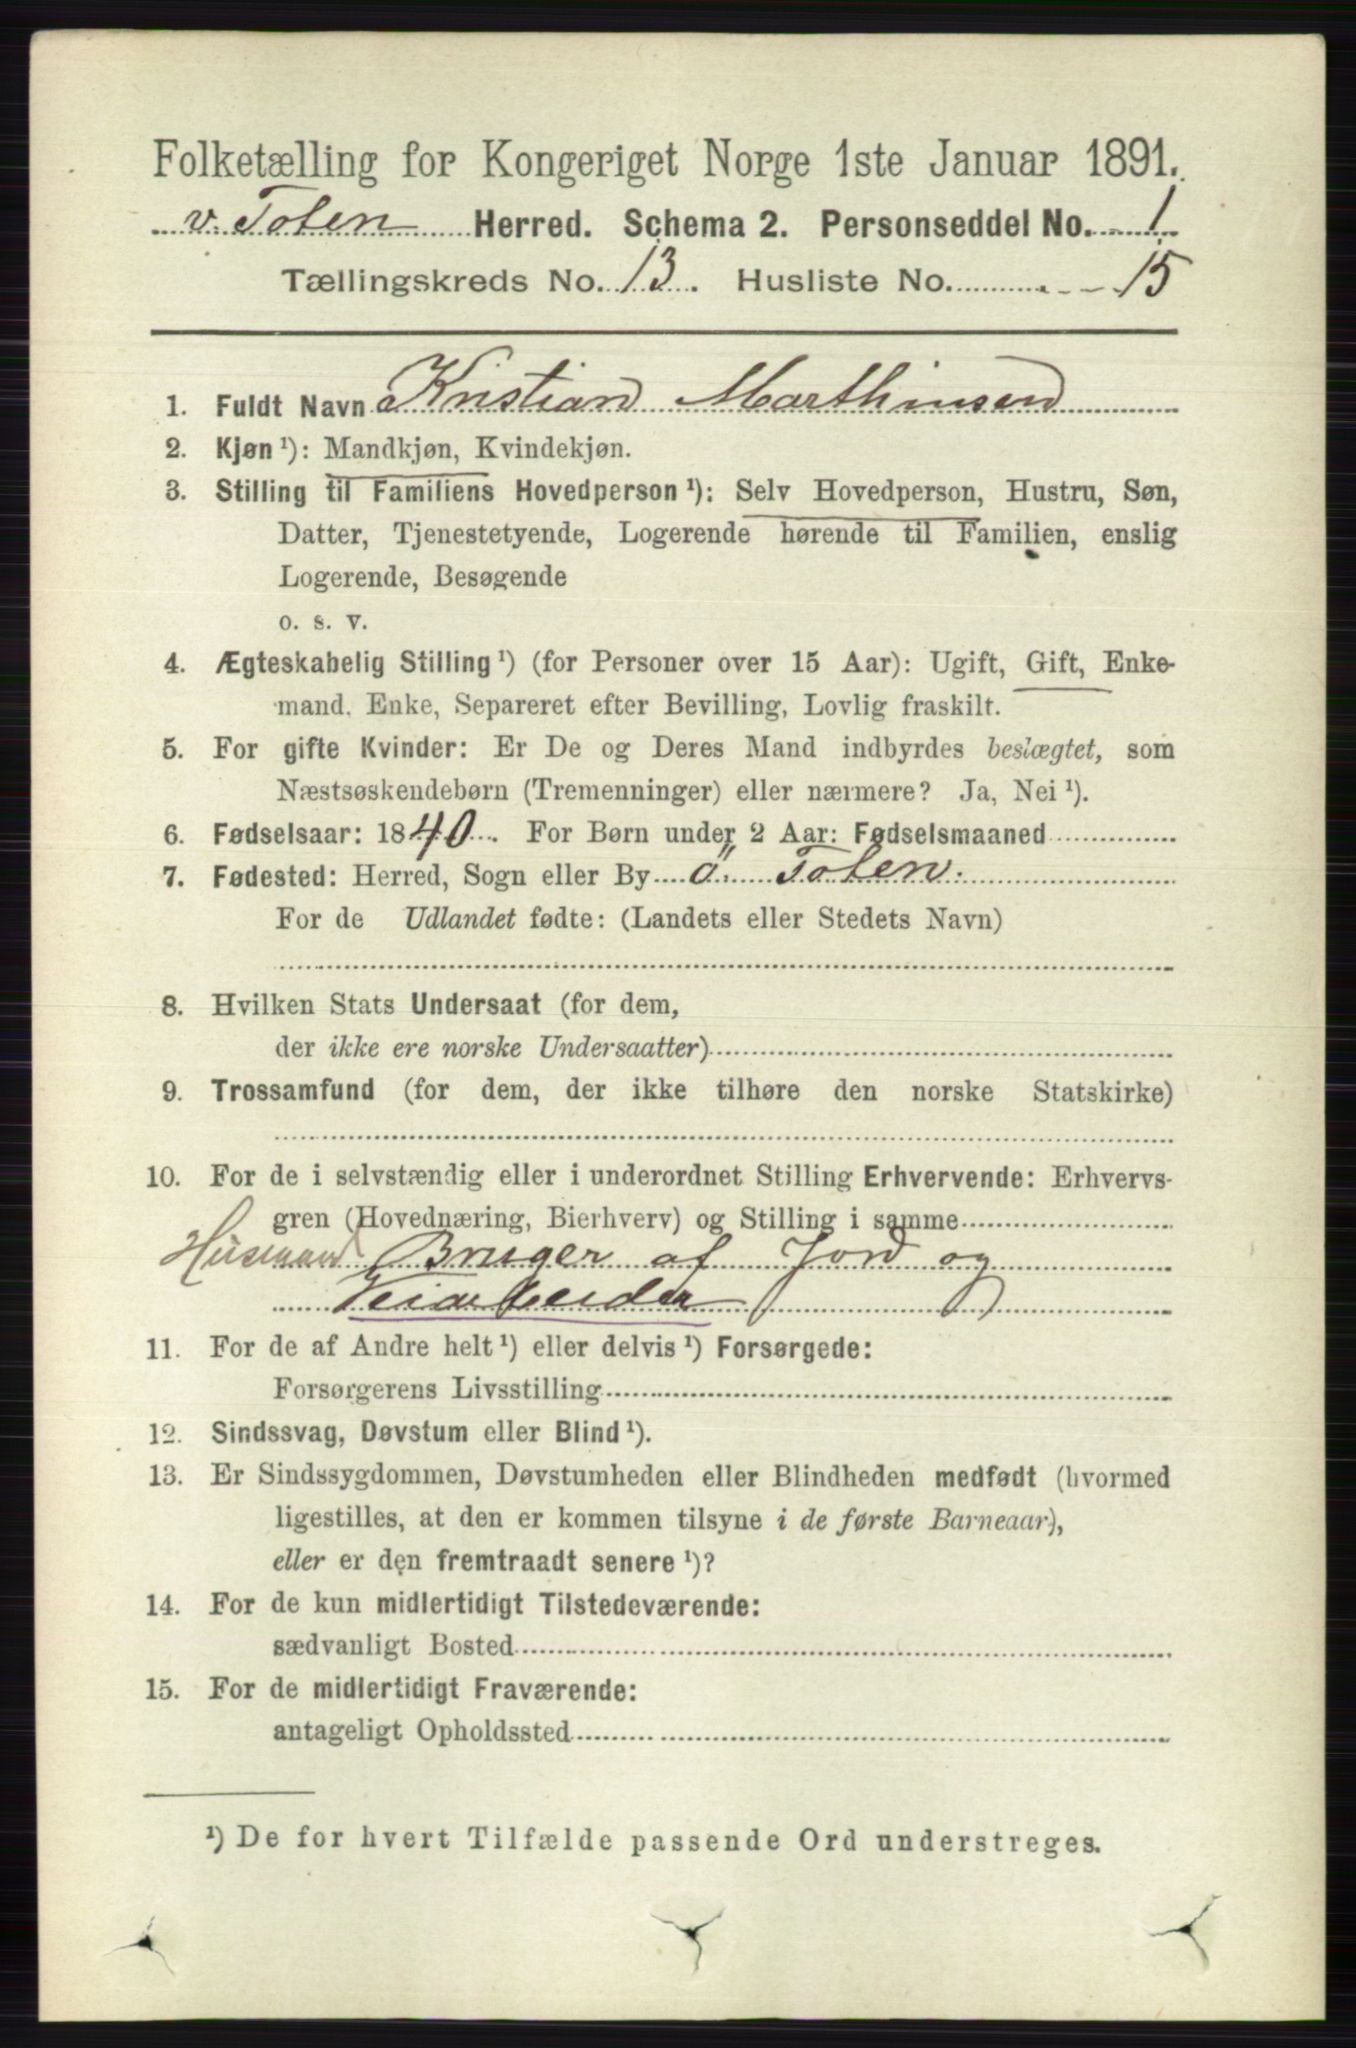 Folketælling for Kongeriget Norge 1ste Januar 1891.
v. Toten Herred. Schema 2. Personseddel No. 1
Tællingskreds No. 13. Husliste No. 15
1. Fuldt Navn Kristian Marthinsen
2. Kjøn ¹): Mandkjøn, Kvindekjøn.
3. Stilling til Familiens Hovedperson ¹): Selv Hovedperson, Hustru, Søn,
Datter, Tjenestetyende, Logerende hørende til Familien, enslig
Logerende, Besøgende
o. s. v.
4. Ægteskabelig Stilling ¹) (for Personer over 15 Aar): Ugift, Gift, Enke-
mand, Enke, Separeret efter Bevilling, Lovlig fraskilt.
5. For gifte Kvinder: Er De og Deres Mand indbyrdes beslægtet, som
Næstsøskendebørn (Tremenninger) eller nærmere? Ja, Nei ¹).
6. Fødselsaar: 1840. For Børn under 2 Aar: Fødselsmaaned
7. Fødested: Herred, Sogn eller By ö. Toten.
For de Udlandet fødte: (Landets eller Stedets Navn)
8. Hvilken Stats Undersaat (for dem,
der ikke ere norske Undersaatter)
9. Trossamfund (for dem, der ikke tilhøre den norske Statskirke)
10. For de i selvstændig eller i underordnet Stilling Erhvervende: Erhvervs-
gren (Hovednæring, Bierhverv) og Stilling i samme
Husmand Bruger af Jord og
Veiarbeider
11. For de af Andre helt ¹) eller delvis ¹) Forsørgede:
Forsørgerens Livsstilling
12. Sindssvag, Døvstum eller Blind ¹).
13. Er Sindssygdommen, Døvstumheden eller Blindheden medfødt (hvormed
ligestilles, at den er kommen tilsyne i de første Barneaar),
eller er den fremtraadt senere ¹)?
14. For de kun midlertidigt Tilstedeværende:
sædvanligt Bosted
15. For de midlertidigt Fraværende:
antageligt Opholdssted
¹) De for hvert Tilfælde passende Ord understreges.